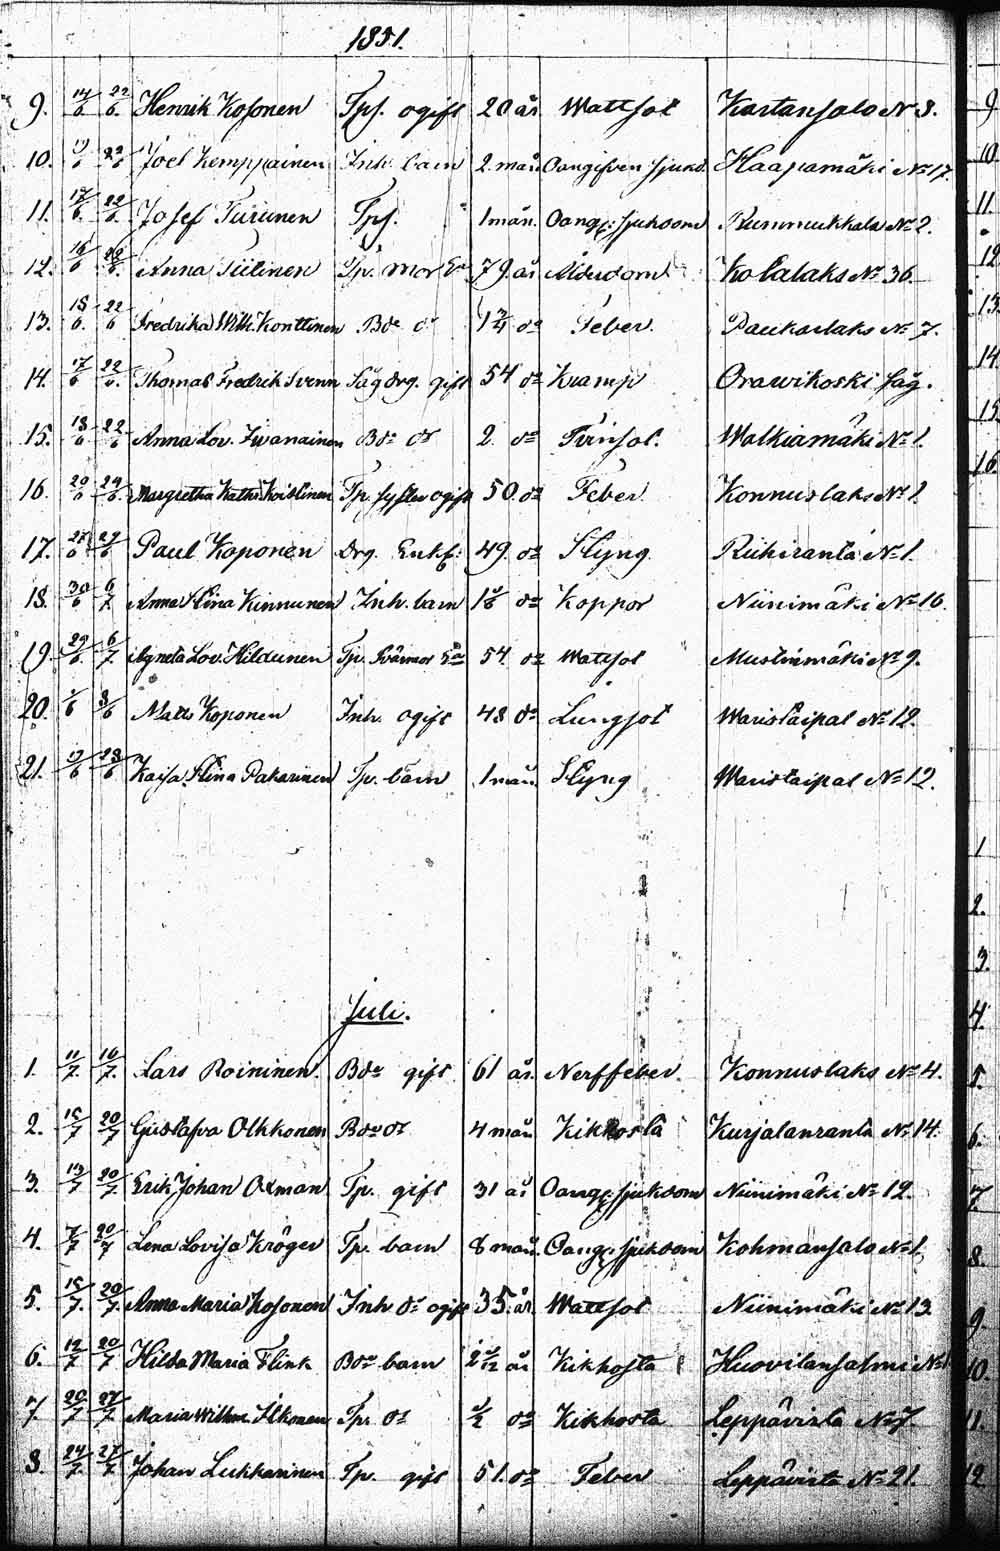 1851.
9. 14/6 22/6. Henrik Kosonen Tps. ogift 20 år Wattsot Kartansalo No 3.
10. 22/6 Joel Kemppainen Inh. barn 2 mån. Oangifven sjukd. Haapamäki No 17.
11. 17/6. 22/6. Josef Turunen Tps. 1 mån. Oangf: sjukdom Rummukkala No 2.
12. 16/6 Anna Tiilinen Tp. mor Ea 79. år Ålderdom Kotalaks No 36.
13. 15/6. 22/6 Fredrika Wilh. Konttinen Bde do 1 3/4 do Feber. Paukarlaks No 7.
14. 17/6 22/6. Thomas Fredrik Svenn Sågdrg. gift 54 do Kramp Orawikoski såg.
15. 18/6 22/6 Anna Lov. Iivanainen Bde do 2 do Tvinsot. Walkiamäki No 1.
16. 20/6 29/6. Margretha Kath. Koistinen Tp. syster ogift 50. do Feber Konnuslaks No 1.
17. 27/6 29/6 Paul Koponen Drg. Enkl: 49. do Styng Riihiranta No 1.
18. 30/6 6/7. Anna Stina Kinnunen Inh. barn do Koppor Niinimäki No 16.
19 29/6. 6/7. Agneta Lov. Hildunen Tp. Svärmor Ea 54 do Wattsot Mustinmäki No 9.
20. Matts Koponen Inh. ogift 48 do Lungsot Waristaipal No 12.
21. 28/6 Kaisa Stina Pakarinen Tp. barn 1 mån. Styng Waristaipal No 12.
Juli.
1. 11/7. 16/7. Lars Roininen. Bde gift 61 år. Nerffeber. Konnuslaks No 4.
2. 15/7 20/7 Gustafva Olkkonen Bde do 4 mån Kikhosta Kurjalanranta No 14.
3. 13/7 20/7. Erik Johan Oxman Tp. gift 31 år Oangf: sjukdom Niinimäki No 12.
4. 7/7 20/7 Lena Lovisa Kröger Tp. barn 8 mån. Oangf: sjukdom Kohmansalo No 1.
5. 15/7. 20/7. Anna Maria Kosonen Inh. dr ogift 35. år Wattsot Niinimäki No 13.
6. 12/7 20/7 Hilda Maria Flink Bde barn år Kikhosta Huovilansalmi No
7. 20/7 27/7 Maria Wilhm. Ilkonen Tp. dr 1/2 do Kikhosta Leppävirta No 7.
8. 24/7. 27/7 Johan Lukkarinen Tp. gift 51. do Feber Leppävirta No 21.
9
10.
11.
12
13.
14.
15
16
1
2.
3.
4.
5.
6.
7.
8.
9.
10.
11.
12